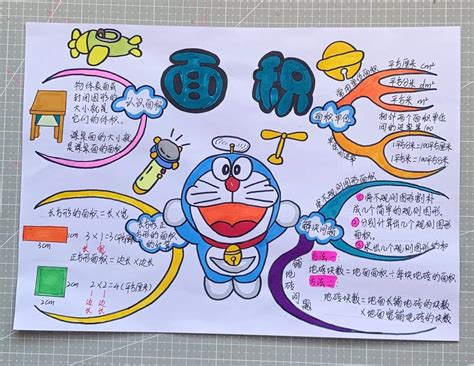 面积
物体表面或
封闭图形的
大小就是
它们的体积。
课桌面的大小就
是课桌面的面积
认识面积
常用单位面积
平方厘米 cm²
平方分米 dm²
平方米 m²
面积单位
相邻两个面积单位间
的进率是100
1平方米=100平方分米
1平方分米=100平方厘米
长方形的面积=长×宽
3×1=3(平方厘米)
长 宽
3cm
正方形面积=边长×边长
2×2=4(平方厘米)
边 边
长 长
2cm
2cm
长方形,正
方形的面积
的计算
求不规则图形面积
①将不规则图形割补
成几个简单的规则图形。
②分别计算出几个图形
面积。
③求出几个图形的和
解决问题
铺
地
砖
问
题
方法一:
地砖块数=地面面积÷每块地砖的面积
方法二:
地砖块数=地面长铺地砖的块数
×地面宽铺地砖的块数